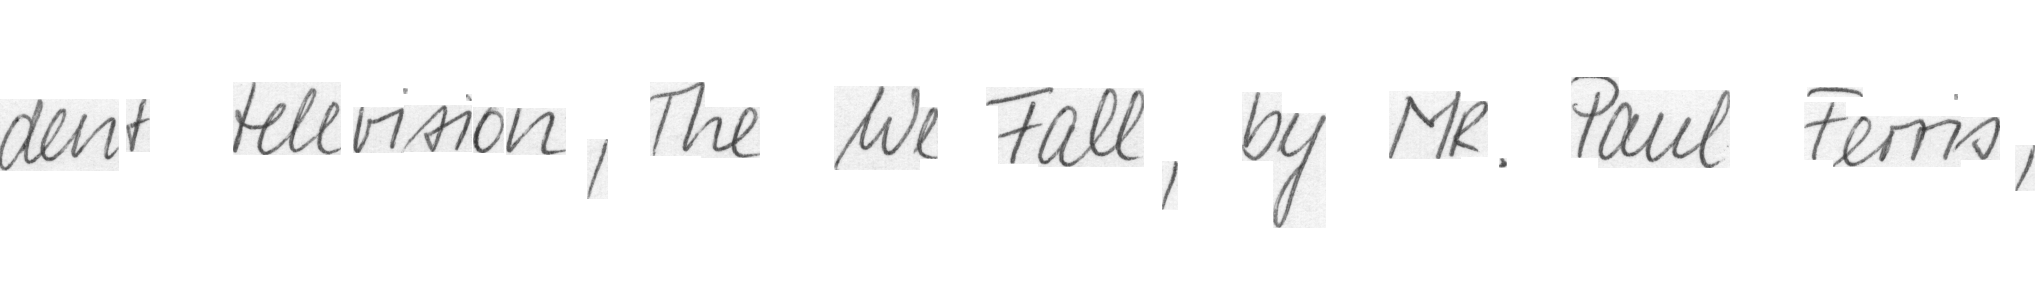 dent television, The We Fall, by Mr. Paul Ferris,